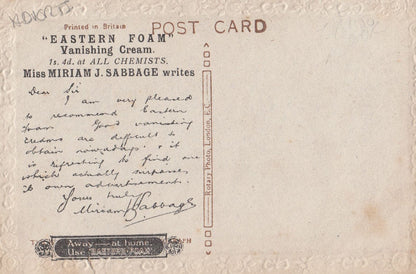 Printed in Britain
POST CARD
"EASTERN FOAM"
Vanishing Cream.
1s. 4d. at ALL CHEMISTS.
Miss MIRIAM J. SABBAGE writes
Dear Sir
I am very pleased
to recommend Eastern
Foam. Good vanishing
creams are difficult to
obtain nowadays & it
is refreshing to find one
which actually surpasses
its own advertisement.
Yours truly
Miriam J Sabbage
Away—at home,
Use "EASTERN FOAM"
Rotary Photo, London, E.C.